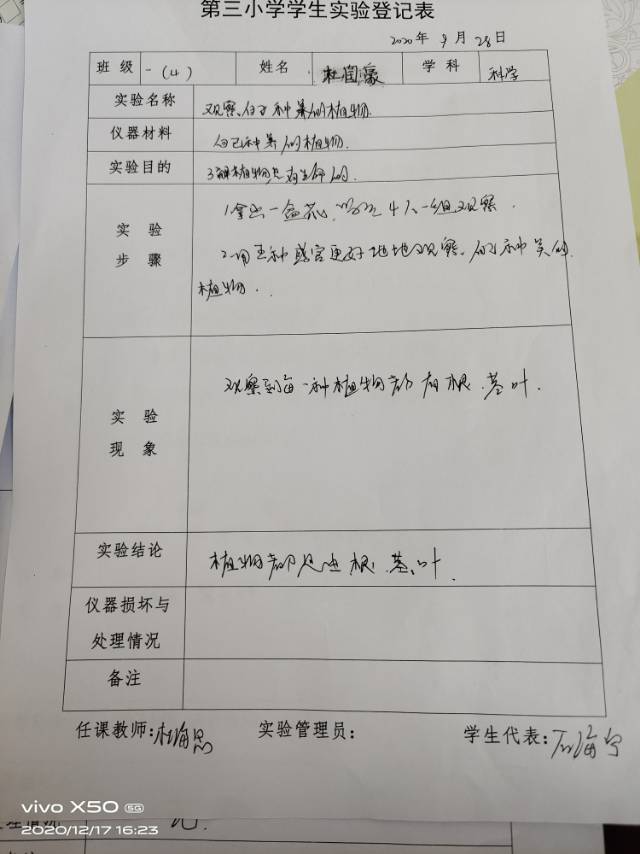 第三小学学生实验登记表
2020年 9月 28日
班级 一(4) 姓名 学科 科学
实验名称 观察、自己种养的植物
仪器材料 自己种养的植物.
实验目的 了解植物是有生命的.
实验步骤 1拿出一盆花, 4人一组观察.
2.用五种感官更好地地观察、自己种养的
植物.
实验现象 观察到每一种植物都有根.茎叶.
实验结论 植物都是由根.茎、叶.
仪器损坏与
处理情况
备注
任课教师: 杜海思 实验管理员: 学生代表:
vivo X50 5G
2020/12/17 16:23